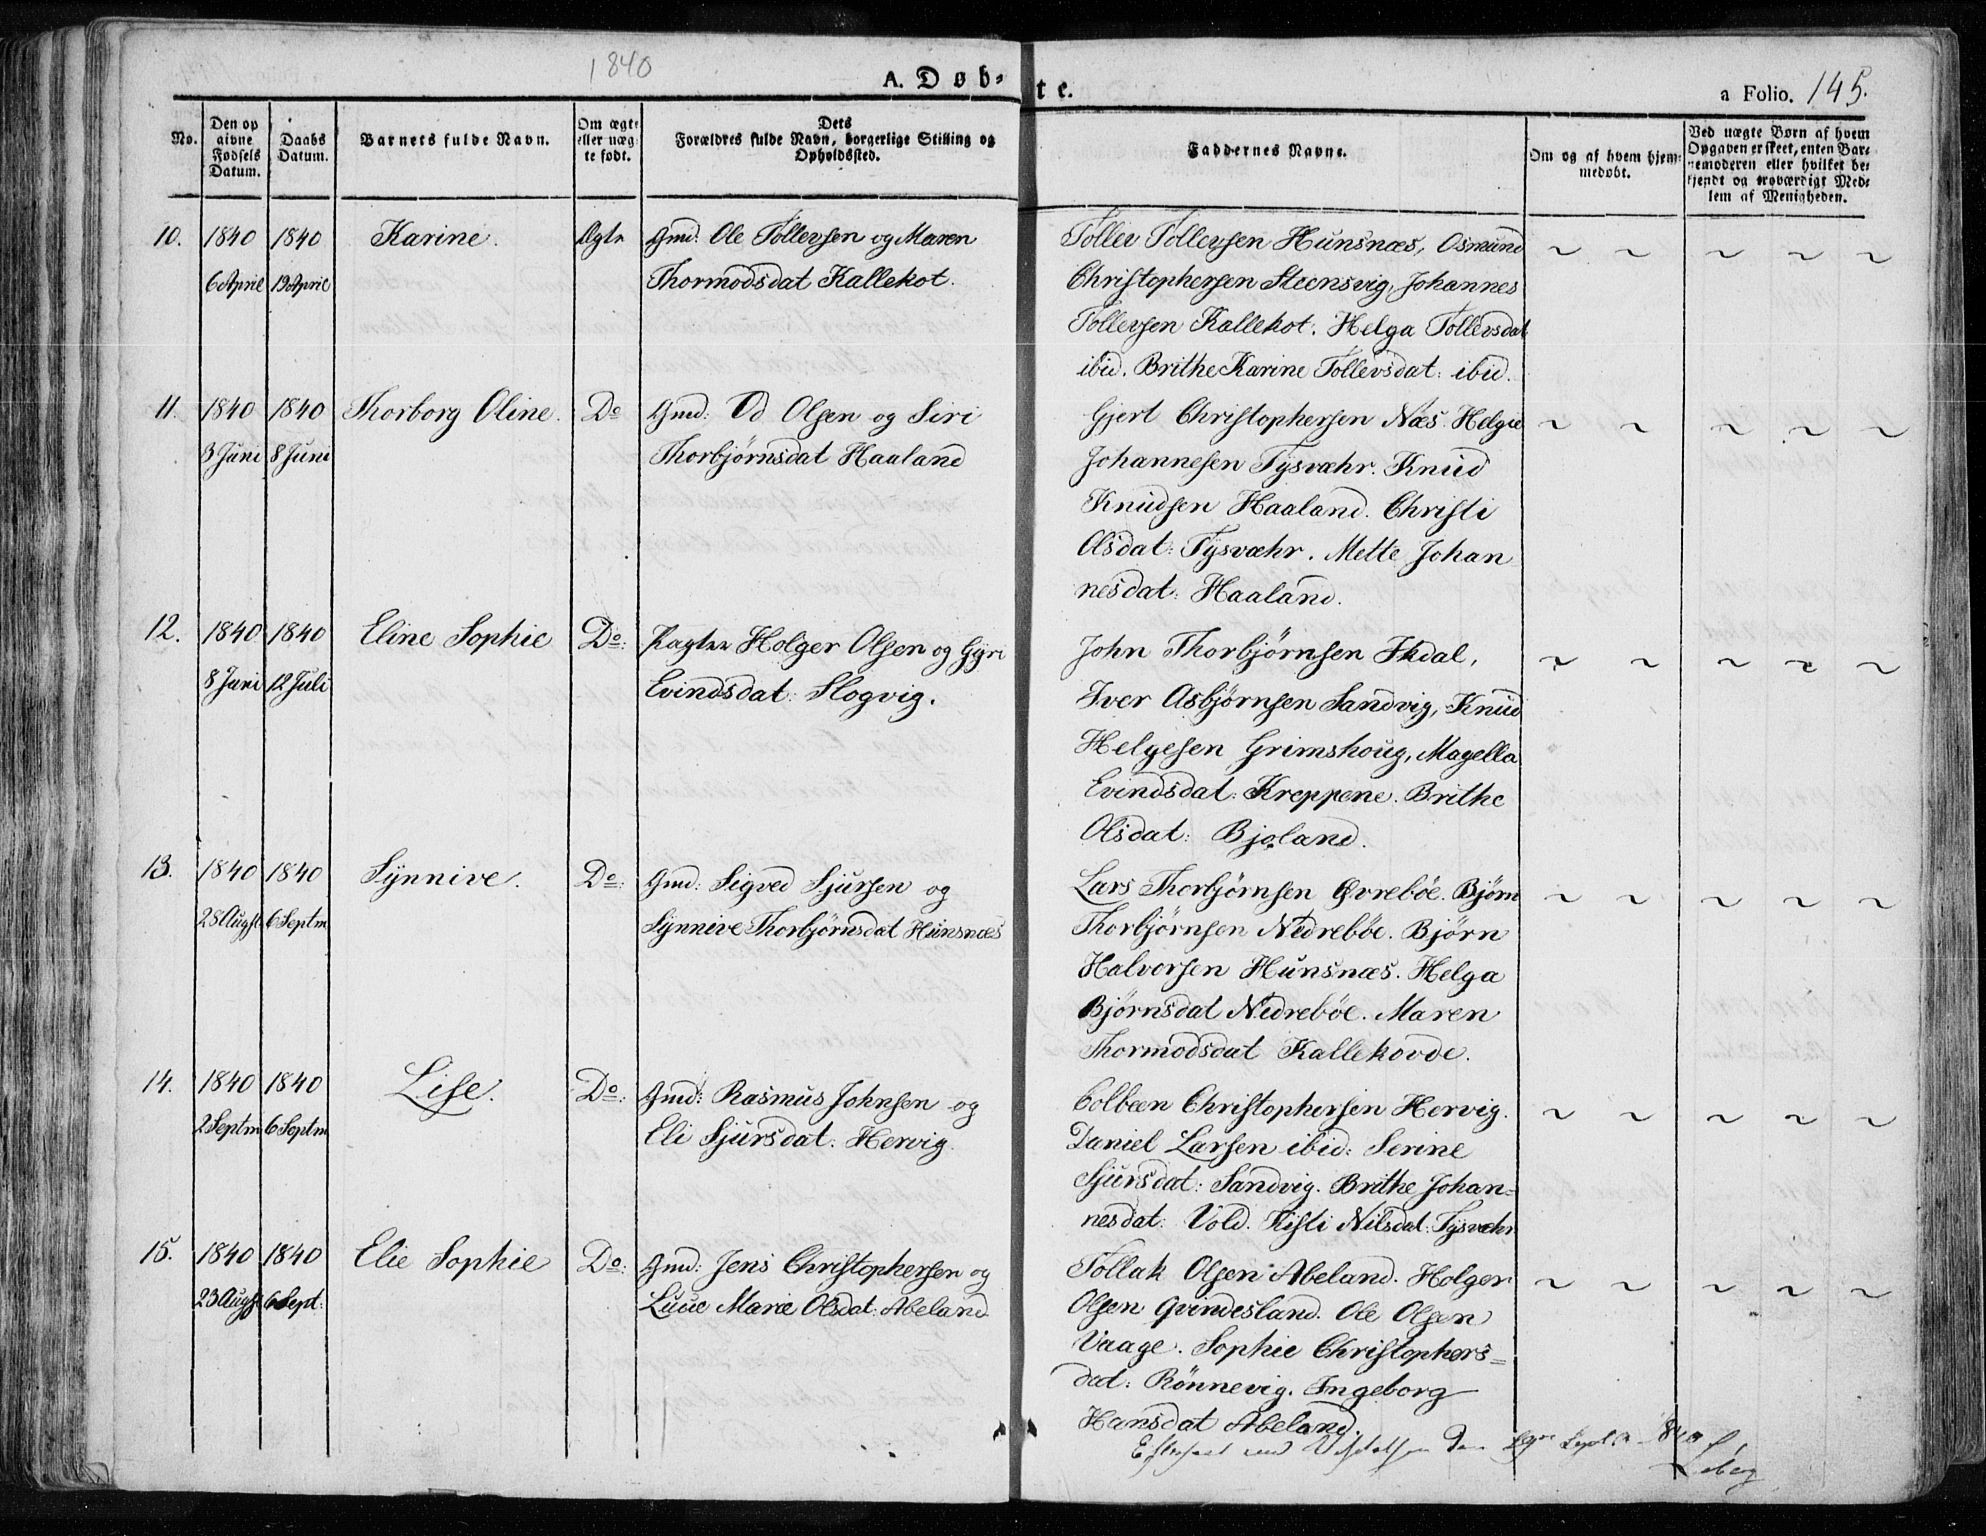 1840
A. Døbte.
a Folio. 145.
No.
Den op
givne
Fødsels
Datum.
Daabs
Datum.
Barnets fulde Navn.
Om ægte
eller uæg
te født.
Dets
Forældres fulde Navn, borgerlige Stilling og
Opholdssted.
Faddernes Navne.
Om og af hvem hjem-
medøbt.
Ved uægte Børn af hvem
Opgaven er skeet, enten Bar-
nemoderen eller hvilket be-
kjendt og troværdigt Med-
lem af Menigheden.
10. 1840 1840 Karine. Ægte Gmd: Ole Tollevsen og Maren
6 April 19 April Thormodsdat Kallekot.
Tollev Tollevsen Hunsnæs, Osmund
Christophersen Steensvig, Johannes
Tollevsen Kallekot. Helga Tollevsdat
ibid. Brithe Karine Tollevsdat: ibid.
11. 1840 1840 Thorborg Oline. Do Gmd: Od Olsen og Siri
3 Juni 8 Juni Thorbjørnsdat Haaland
Gjert Christophersen Næs. Helgie
Johannesen Tysvæhr. Knud
Knudsen Haaland. Christi
Olsdat: Tysvæhr. Mette Johan
nesdat: Haaland.
12. 1840 1840 Eline Sophie Do: Holger Olsen og Gyri
8 Juni 12 Juli Evindsdat: Slogvig.
John Thorbjørnsen Ihdal,
Iver Asbjørnsen Sandvig, Knud
Helgesen Grimshoug, Magella
Evindsdat: Kreppene. Brithe
Olsdat: Bjoland.
13. 1840 1840 Synnive. Do: Gmd: Sigved Sjursen og
28 Augst 6 Septm Synnive Thorbjørnsdat Hunsnæs
Lars Thorbjørnsen Øvrebøe. Bjørn
Thorbjørnsen Nedrebøe. Bjørn
Halvorsen Hunsnæs. Helga
Bjørnsdat Nedrebøe. Maren
Thormodsdat Kallekovde.
14. 1840 1840 Lise. Do: Gmd: Rasmus Johnsen og
2 Septm 6 Septm Eli Sjursdat: Hervig.
Colbeen Christophersen Hervig.
Daniel Larsen ibid: Serine
Sjursdat: Sandvig. Brithe Johan=
nesdat: Vold. Kisti Nilsdat: Tysvæhr
15. 1840 1840 Elie Sophie Do: Gmd: Jens Christophersen og
23 Augst 6 Sept: Marie Olsdat: Abeland
Tollak Olsen Abeland. Holger
Olsen Qvindesland. Ole Olsen
Vaage. Sophie Christophers=
dat: Rønnevig. Ingeborg
Hansdat Abeland.
Efterseet ved Visitatsen den